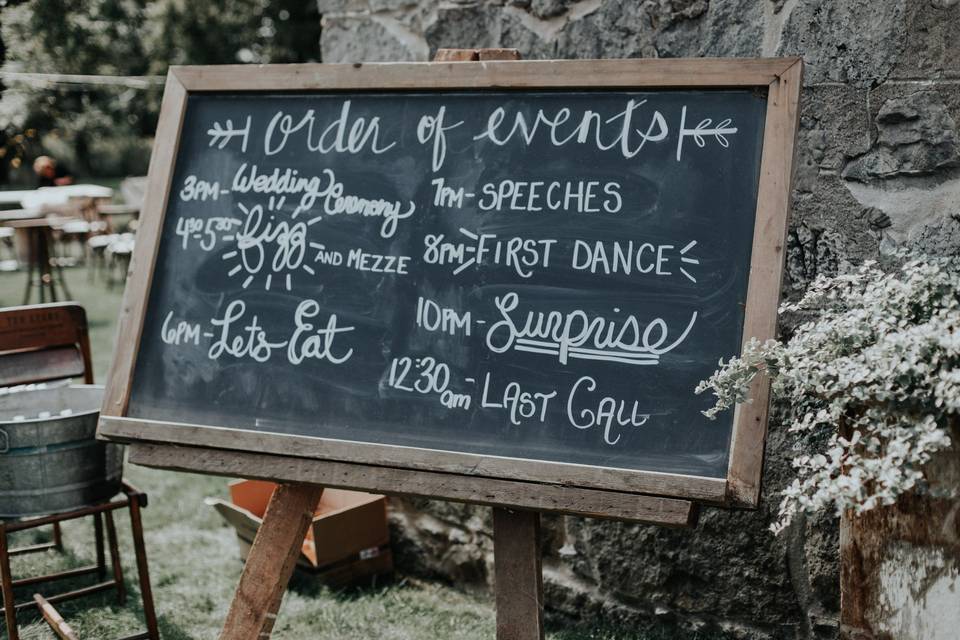 order of events
3PM- Wedding Ceremony
4:30-5:30- fizz AND MEZZE
6PM- Lets Eat
7PM- SPEECHES
8PM- FIRST DANCE
10PM- Surprise
12:30am- LAST CALL